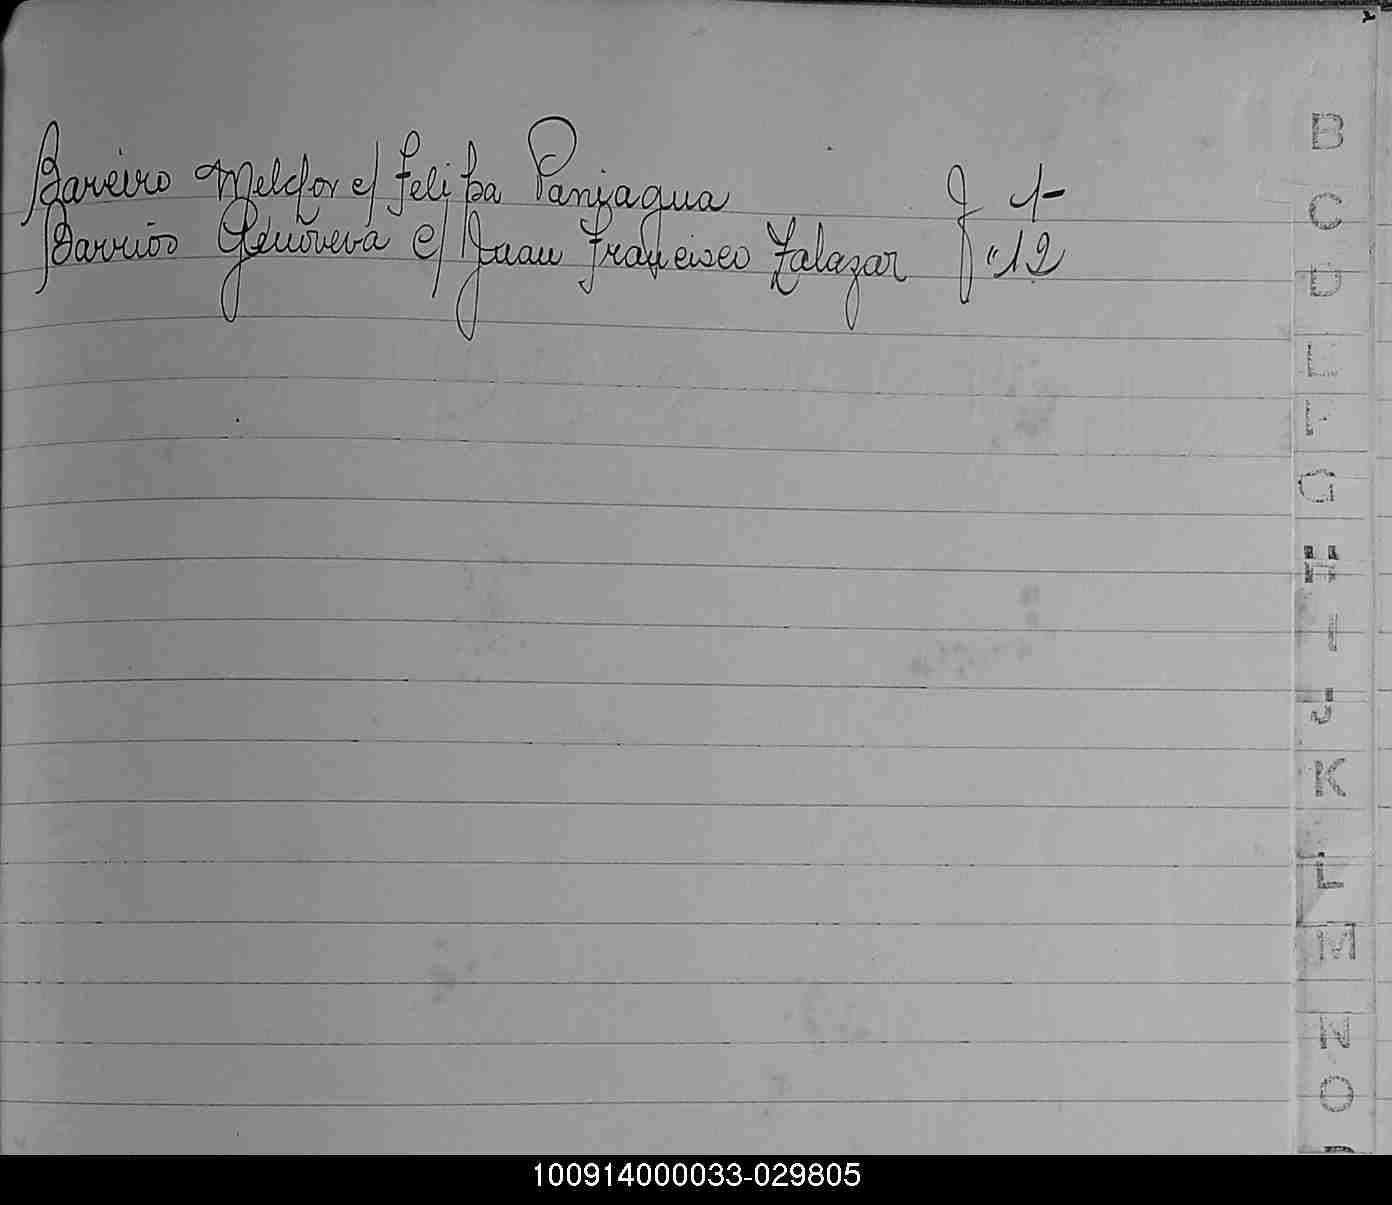 Bareiro Melchor c/ Felipa Paniagua F 1-
Barrios Genoveva c/ Juan Francisco Zalazar F "12
B
C
D
E
F
G
H
I
J
K
L
M
N
O
100914000033-029805